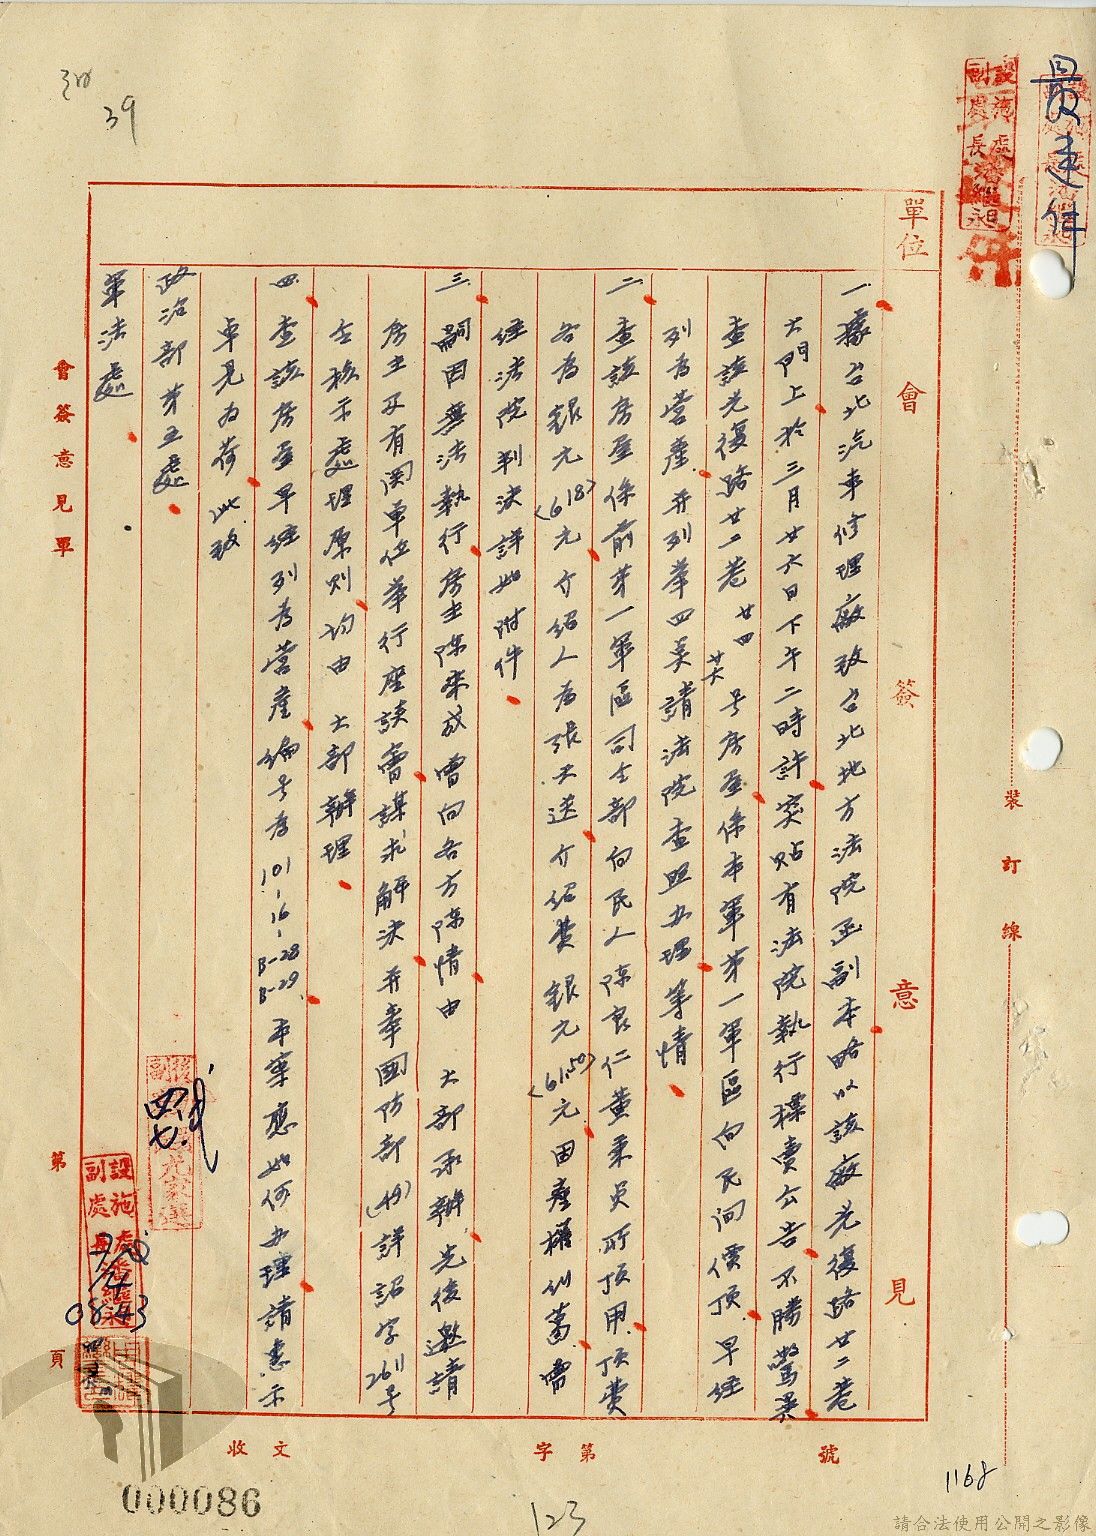 最速件
設施處
副處長
潘繼永
39
單位
會簽意見
一據台北汽車修理廠致台北地方法院函副本略以該廠光復路廿二巷
大門上於三月廿六日下午二時許突貼有法院執行標賣公告不勝驚異
查該光復路廿二巷廿四廿六號房屋係本軍第一軍區向民間價頂早經
列為營產并列舉四點請法院查照办理等情
二查該房屋係前第一軍區司令部向民人陳良仁黃秉貞所頂用頂費
各為銀元(618)元介紹人為張天送介紹費銀元(61.50)元因產權糾葛曾
經法院判決詳如附件
三嗣因無法執行房主陳來成曾向各方陳情由 大部承辦先後邀請
房主及有関單位舉行座談會謀求解決并奉國防部(49)詳詔字2611号
令核示處理原則均由 大部辦理
四查該房屋早經列為營產編号為101-16-B-28 B-29本案應如何办理請惠示
卓見为荷 此致
政治部第五處
軍法處
會簽意見單
第 頁
設施處
副處長
潘繼永
7/4
0843
收文 字第 號
裝訂線
000086
123
1168
請合法使用公開之影像